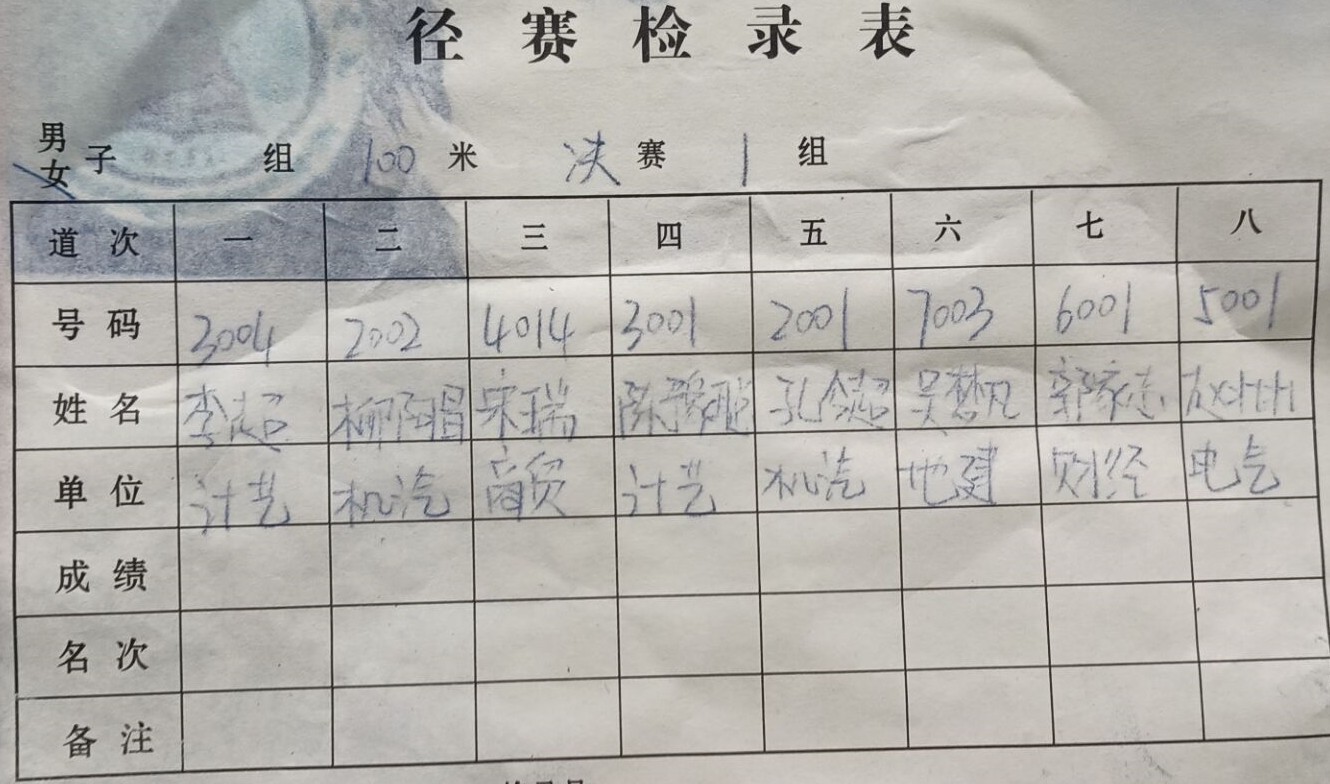 径赛检录表
男
女 子 组 100 米 决 赛 1 组
道次 一 二 三 四 五 六 七 八
号码 3004 2002 4014 3001 2001 7003 6001 5001
姓名 李超 柳阳昌 宋瑞 孔令超 吴梦凡
单位 计艺 机汽 商贸 计艺 机汽 地建 财经 电气
成绩
名次
备注